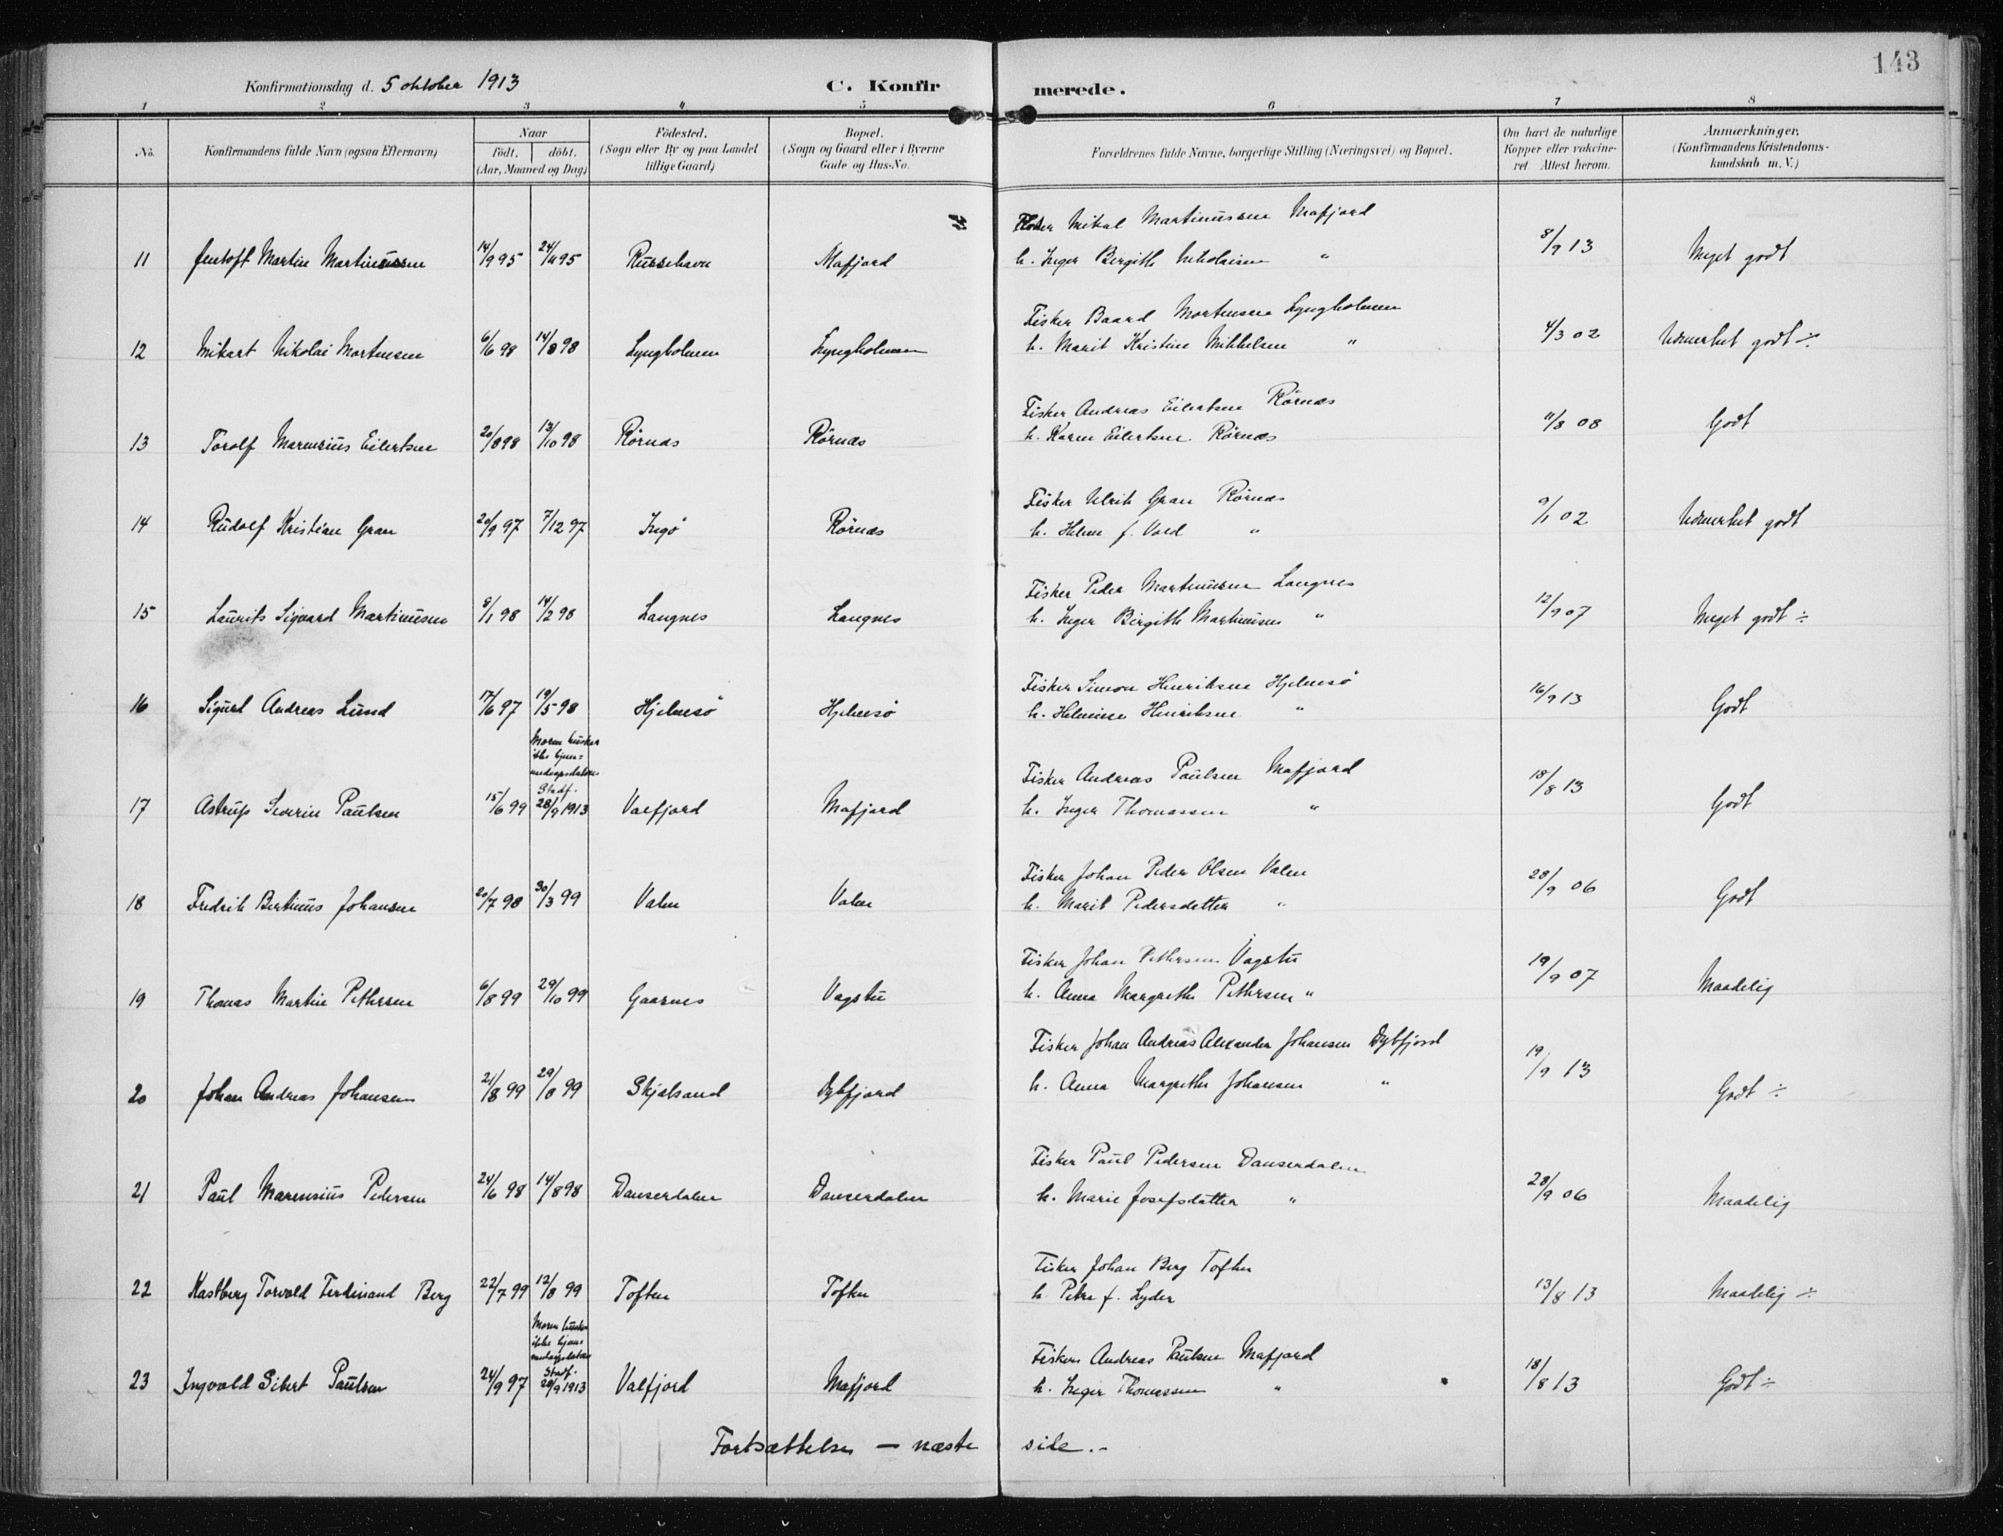 143
Konfirmationsdag d. 5 oktober 1913 C. Konfirmerede.
1 2 3 4 5 6 7 8
No. Konfirmandens fulde Navn (ogsaa Efternavn) Naar Födt. döbt. (Aar, Maaned og Dag) Födested. (Sogn eller By og paa Landet tillige Gaard) Bopæl. (Sogn og Gaard eller i Byerne Gade og Hus-No. Forældrenes fulde Navne, borgerlige Stilling (Næringsvei) og Bopæl. Om havt de naturlige Kopper eller vakcineret Attest herom. Anmærkninger. (Konfirmandens Kristendomskundskab m. V.)
Fisker Mikal Martinussen Mafjord
11 Jentoft Martin Martinussen 14/9 95 24/11 95 Russehavn Mafjord h. Inger Birgith Nikolaisen " 8/9 13 Meget godt
Fisker Baard Mortensen Lyngholmen
12 Mikart Nikolai Mortensen 6/6 98 14/8 98 Lyngholmen Lyngholmen h. Marit Kristine Mikkelsen " 4/3 02 Udmerket godt ÷
Fisker Andreas Eilertsen Rörnæs
13 Torolf Marensius Eilertsen 20/8 98 13/10 98 Rörnæs Rörnæs h. Karen Eilertsen Rörnæs 11/8 08 Godt
Fisker Ulrik Gran Rörnæs
14 Rudolf Kristian Gran 20/9 97 7/12 97 Ingö Rörnæs h. Helene f. Vold " 9/1 02 Udmerket godt
Fisker Peder Martinussen Langnes
15 Laurits Sigvard Martinussen 8/1 98 14/2 98 Langnes Langnes h. Inger Birgith Martinussen " 12/9 07 Meget godt ÷
Fisker Simon Henriksen Hjelmsö
16 Sigurd Andreas Lund 17/6 97 19/5 98 Hjelmesö Hjelmesö h. Helmine Henriksen " 16/9 13 Godt
Moren husker
ikke hjem-
medaapsdatoen
Stadf.
Fisker Andreas Paulsen Mafjord
17 Astrup Severin Paulsen 15/6 99 28/9 1913 Valfjord Mafjord h. Inger Thomassen " 18/8 13 Godt
Fisker Johan Peder Olsen Valen
18 Fredrik Bertinus Johansen 20/7 98 30/3 99 Valen Valen h. Marit Pedersdatter " 28/9 06 Godt
Fisker Johan Pettersen Vagstu
19 Thomas Martin Pettersen 6/8 99 29/10 99 Gaarnes Vagstu h. Anna Margrethe Pettersen " 19/9 07 Maadelig
Fisker Johan Andreas Alexander Johansen Dybfjord
20 Johan Andreas Johansen 21/8 99 29/8 99 Skjalsand Dybfjord h. Anna Margrethe Johansen " 19/9 13 Godt ÷
Fisker Paul Pedersen Danserdalen
21 Paul Marensius Pedersen 24/6 98 14/8 98 Danserdalen Danserdalen h. Marie Josefsdatter " 28/9 06 Maadelig
Fisker Johan Berg Toften
22 Kastberg Torvald Ferdinand Berg 22/7 99 12/8 99 Toften Toften h. Petra f. Lyder 13/8 13 Maadelig ÷
Moren husker
ikke hjem-
medaapsdatoen
Stadf.
Fisker Andreas Paulsen Mafjord
23 Ingvald Sibert Paulsen 24/9 97 28/9 1913 Valfjord Mafjord h. Inger Thomassen " 18/8 13 Godt ÷
Fortsættelse — næste side.-